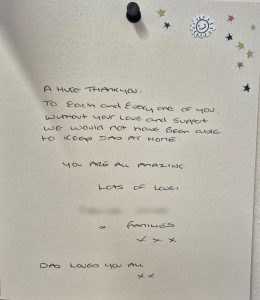 A HUGE THANKYOU.
TO Each and Every one of you
without your Love and Support
WE WOULD NOT HAVE BEEN ABLE
TO KEEP DAD AT HOME.
YOU ARE ALL AMAZING.
LOTS OF LOVE.
& FAMILIES
x x x
DAD LOVED YOU ALL
x x